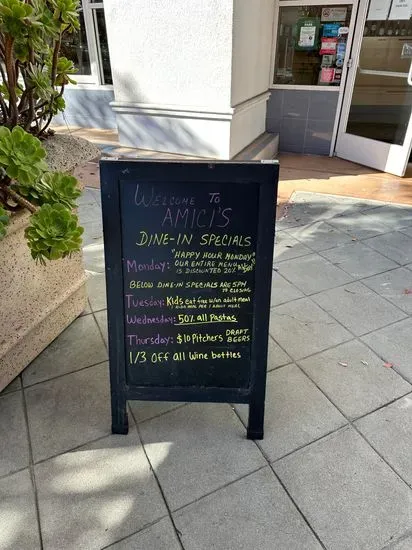 WELCOME TO
AMICI'S
DINE-IN SPECIALS
"HAPPY HOUR MONDAY"
Monday: OUR ENTIRE MENU
IS DISCOUNTED 20%
BELOW DINE-IN SPECIALS ARE 5PM
TO CLOSING
Tuesday: Kids eat free w/an adult meal
Wednesday: 50% all Pastas
Thursday: $10 Pitchers DRAFT
BEERS
1/3 Off all Wine bottles